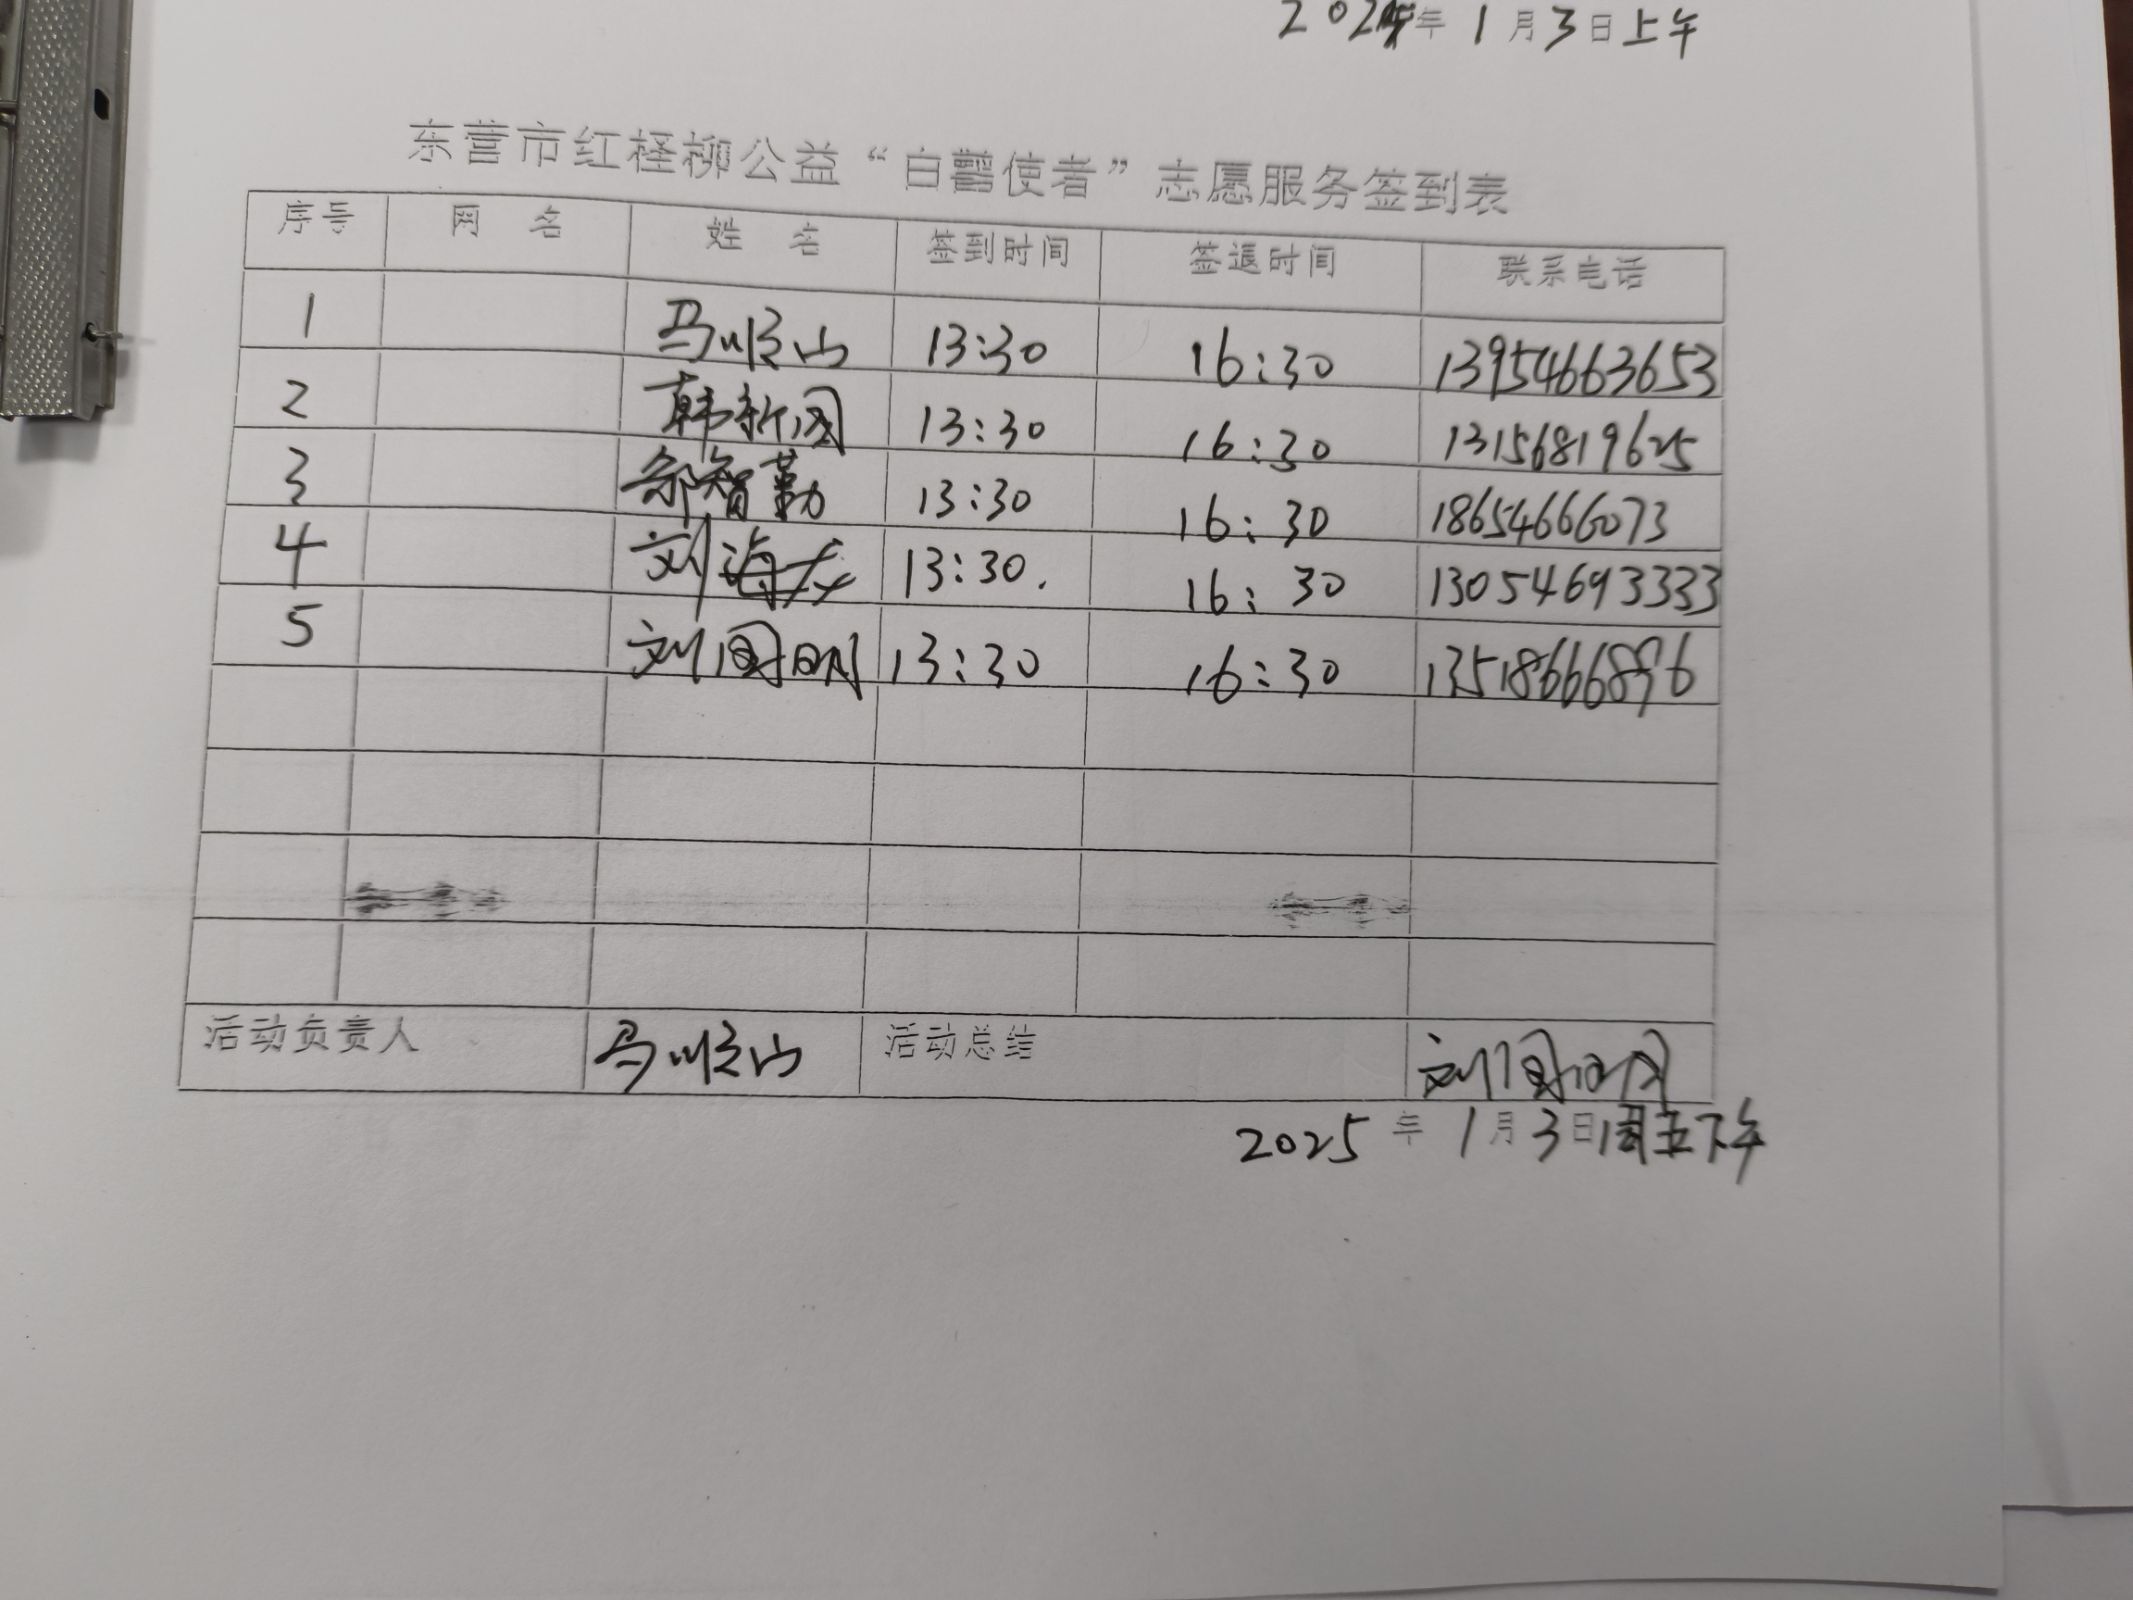 2025年1月3日上午
东营市红柽柳公益“白鹳使者”志愿服务签到表
序号 网 名 姓 名 签到时间 签退时间 联系电话
1 马顺山 13:30 16:30 13954663653
2 韩新国 13:30 16:30 13156819625
3 智勤 13:30 16:30 18654666073
4 刘海 13:30. 16:30 13054693333
5 刘国明 13:30 16:30 13518666896
活动负责人 马顺山 活动总结 刘国明
2025年1月3日周五下午